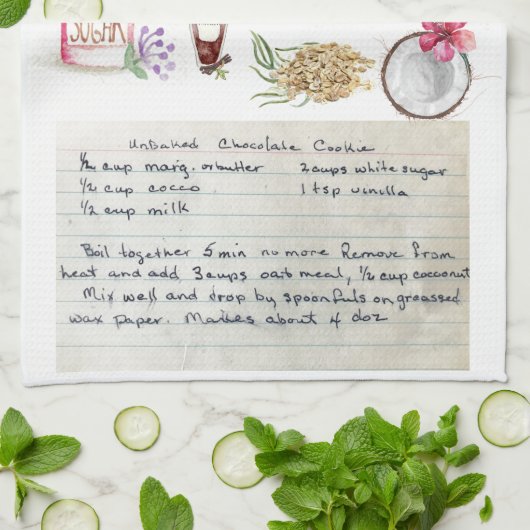 SUGAR
UnBaked Chocolate Cookie
1/2 cup marg. or butter 2 cups white sugar
1/2 cup cocco 1 tsp vinilla
1/2 cup milk
Boil together 5 min no more Remove from
heat and add 3 cups oatmeal, 1/2 cup cocconut
Mix well and drop by spoonfuls on greassed
wax paper. Makes about 4 doz